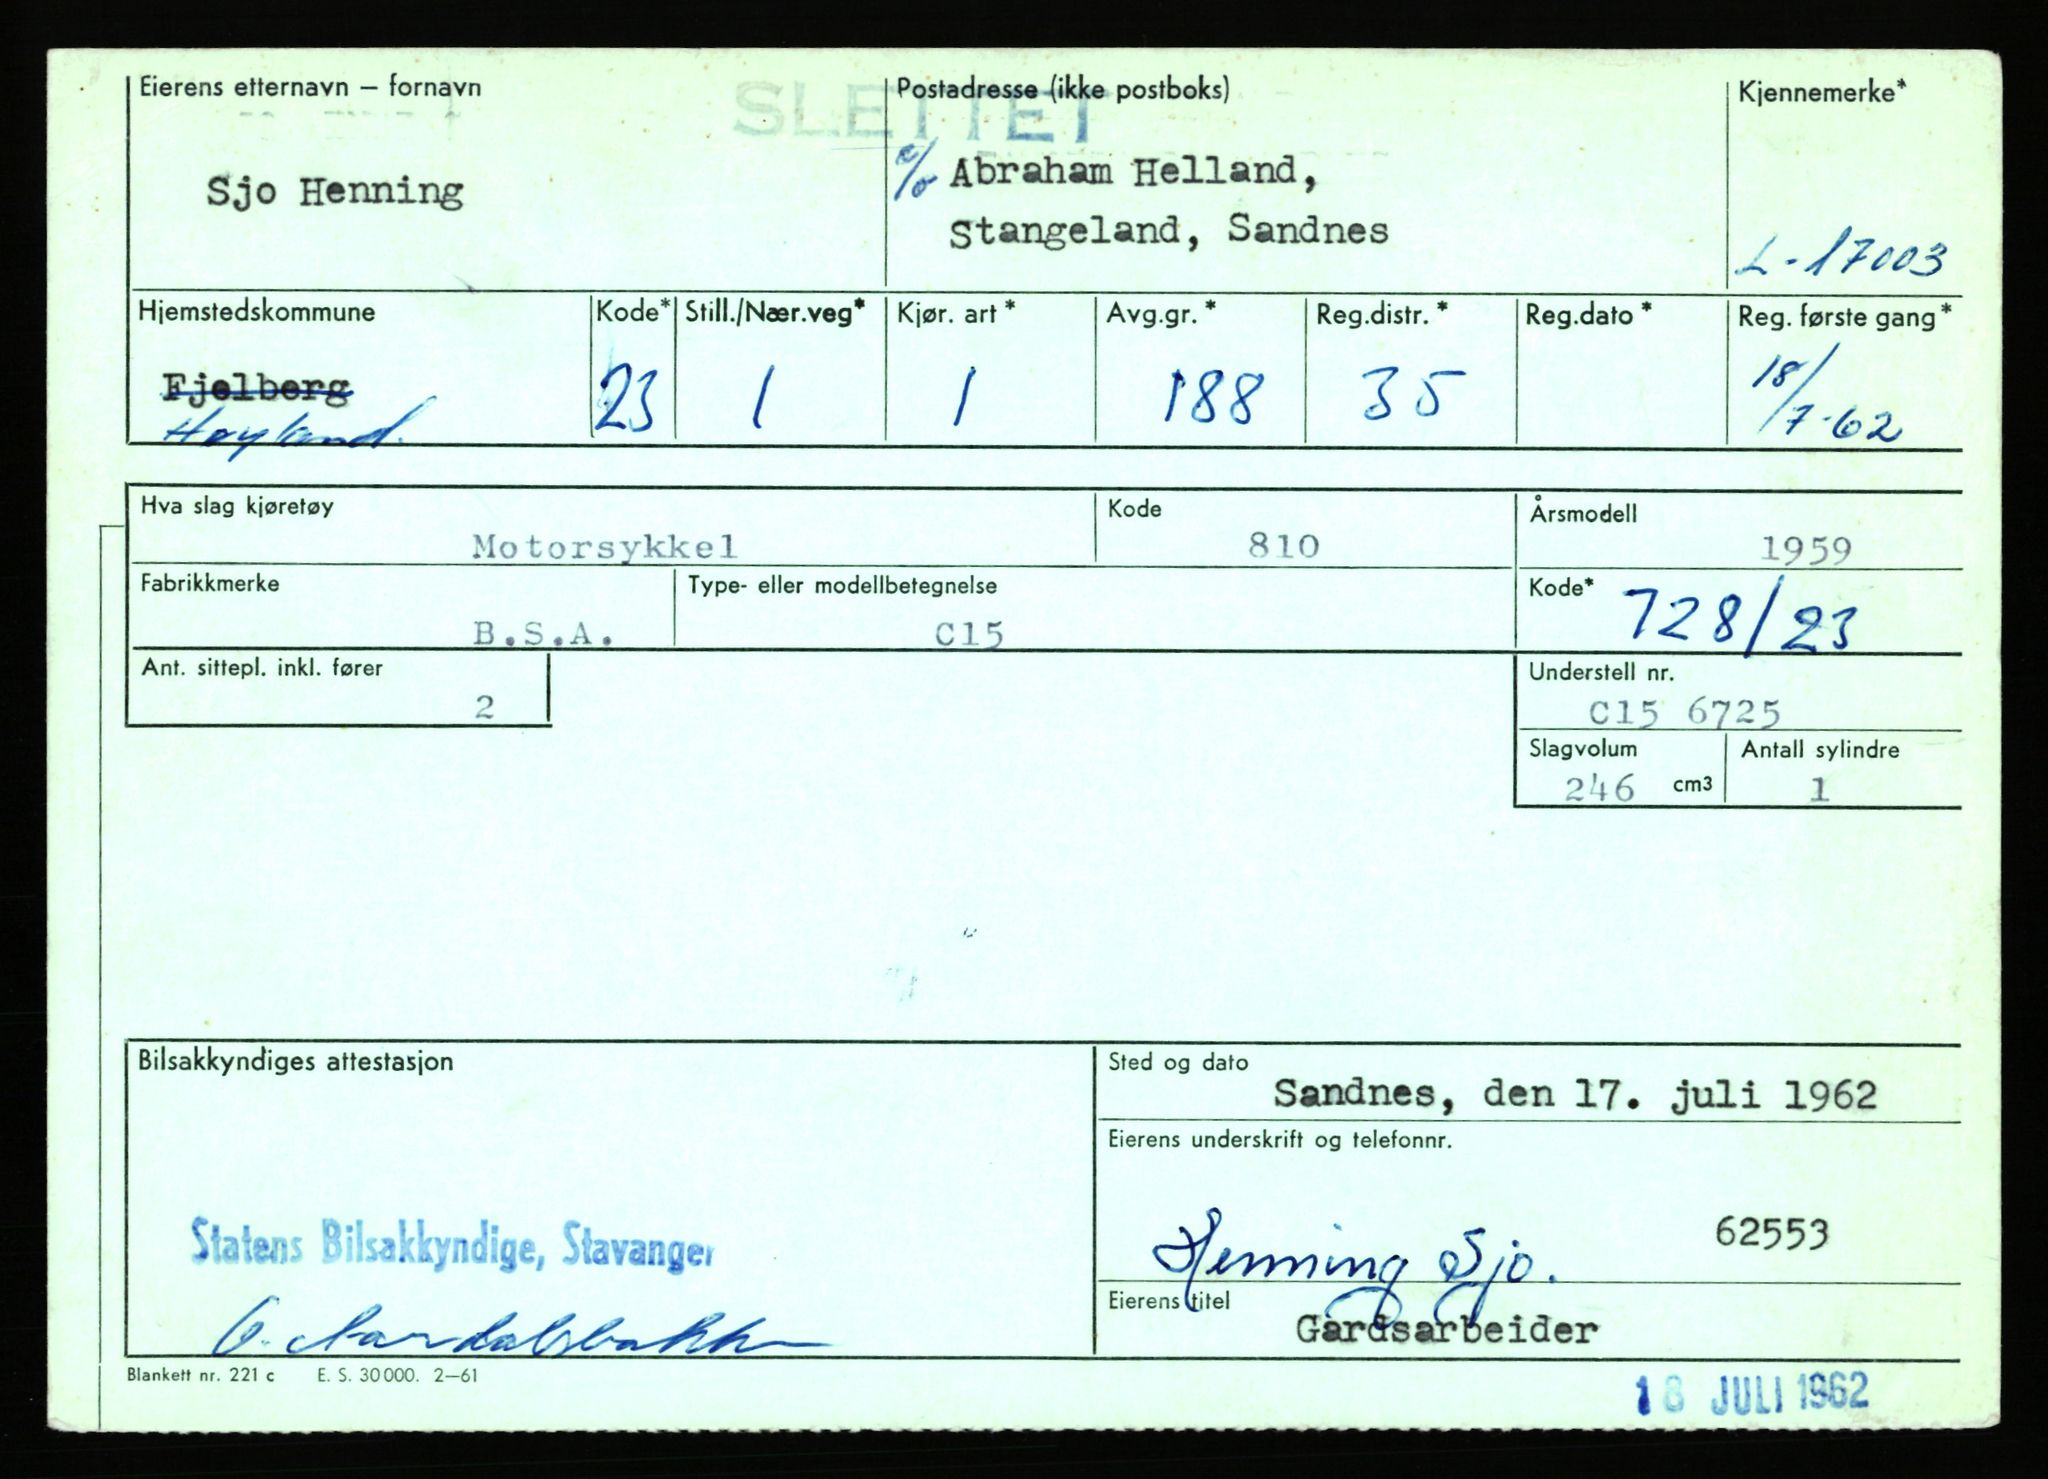 SLETTET
Eierens etternavn – fornavn
Sjo Henning
Postadresse (ikke postboks)
c/o Abraham Helland,
Stangeland, Sandnes
Kjennemerke*
L-17003
Hjemstedskommune
Fjelberg
Høyland.
Kode*
23
Still./Nær.veg*
1
Kjør. art*
1
Avg.gr.*
188
Reg.distr.*
35
Reg.dato*
Reg. første gang*
18/7-62
Hva slag kjøretøy
Motorsykkel
Kode
810
Årsmodell
1959
Fabrikkmerke
B.S.A.
Type- eller modellbetegnelse
C15
Kode*
728/23
Ant. sittepl. inkl. fører
2
Understell nr.
C15 6725
Slagvolum
246 cm3
Antall sylindre
1
Bilsakkyndiges attestasjon
Statens Bilsakkyndige, Stavanger
Sted og dato
Sandnes, den 17. juli 1962
Eierens underskrift og telefonnr.
Henning Sjo.
62553
Eierens titel
Gårdsarbeider
Blankett nr. 221 c E. S. 30 000. 2–61
18 JULI 1962